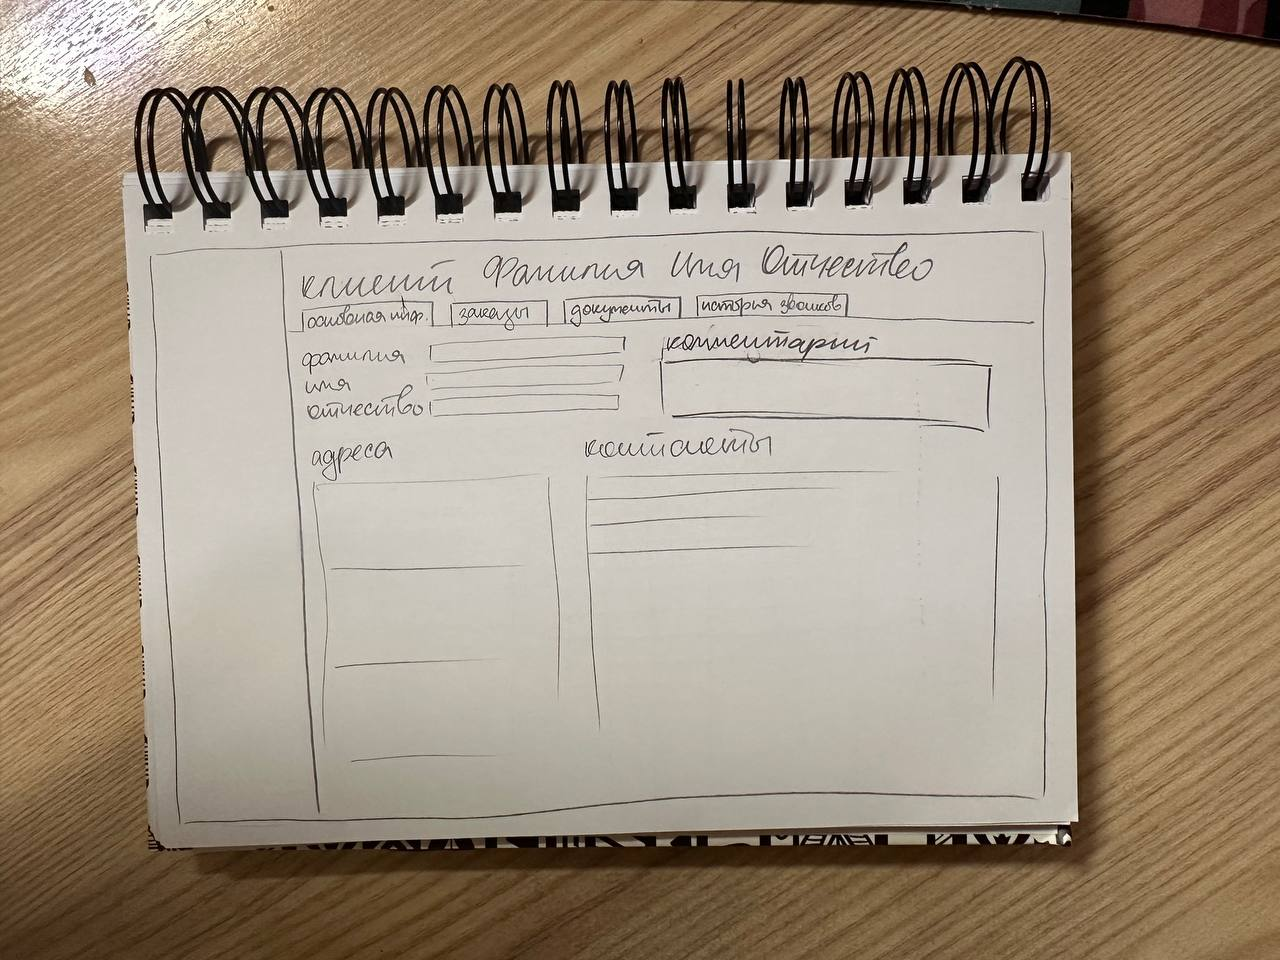 клиент Фамилия Имя Отчество
основная инф. заказы документы история звонков
фамилия
комментарий
имя
отчество
адреса
контакты